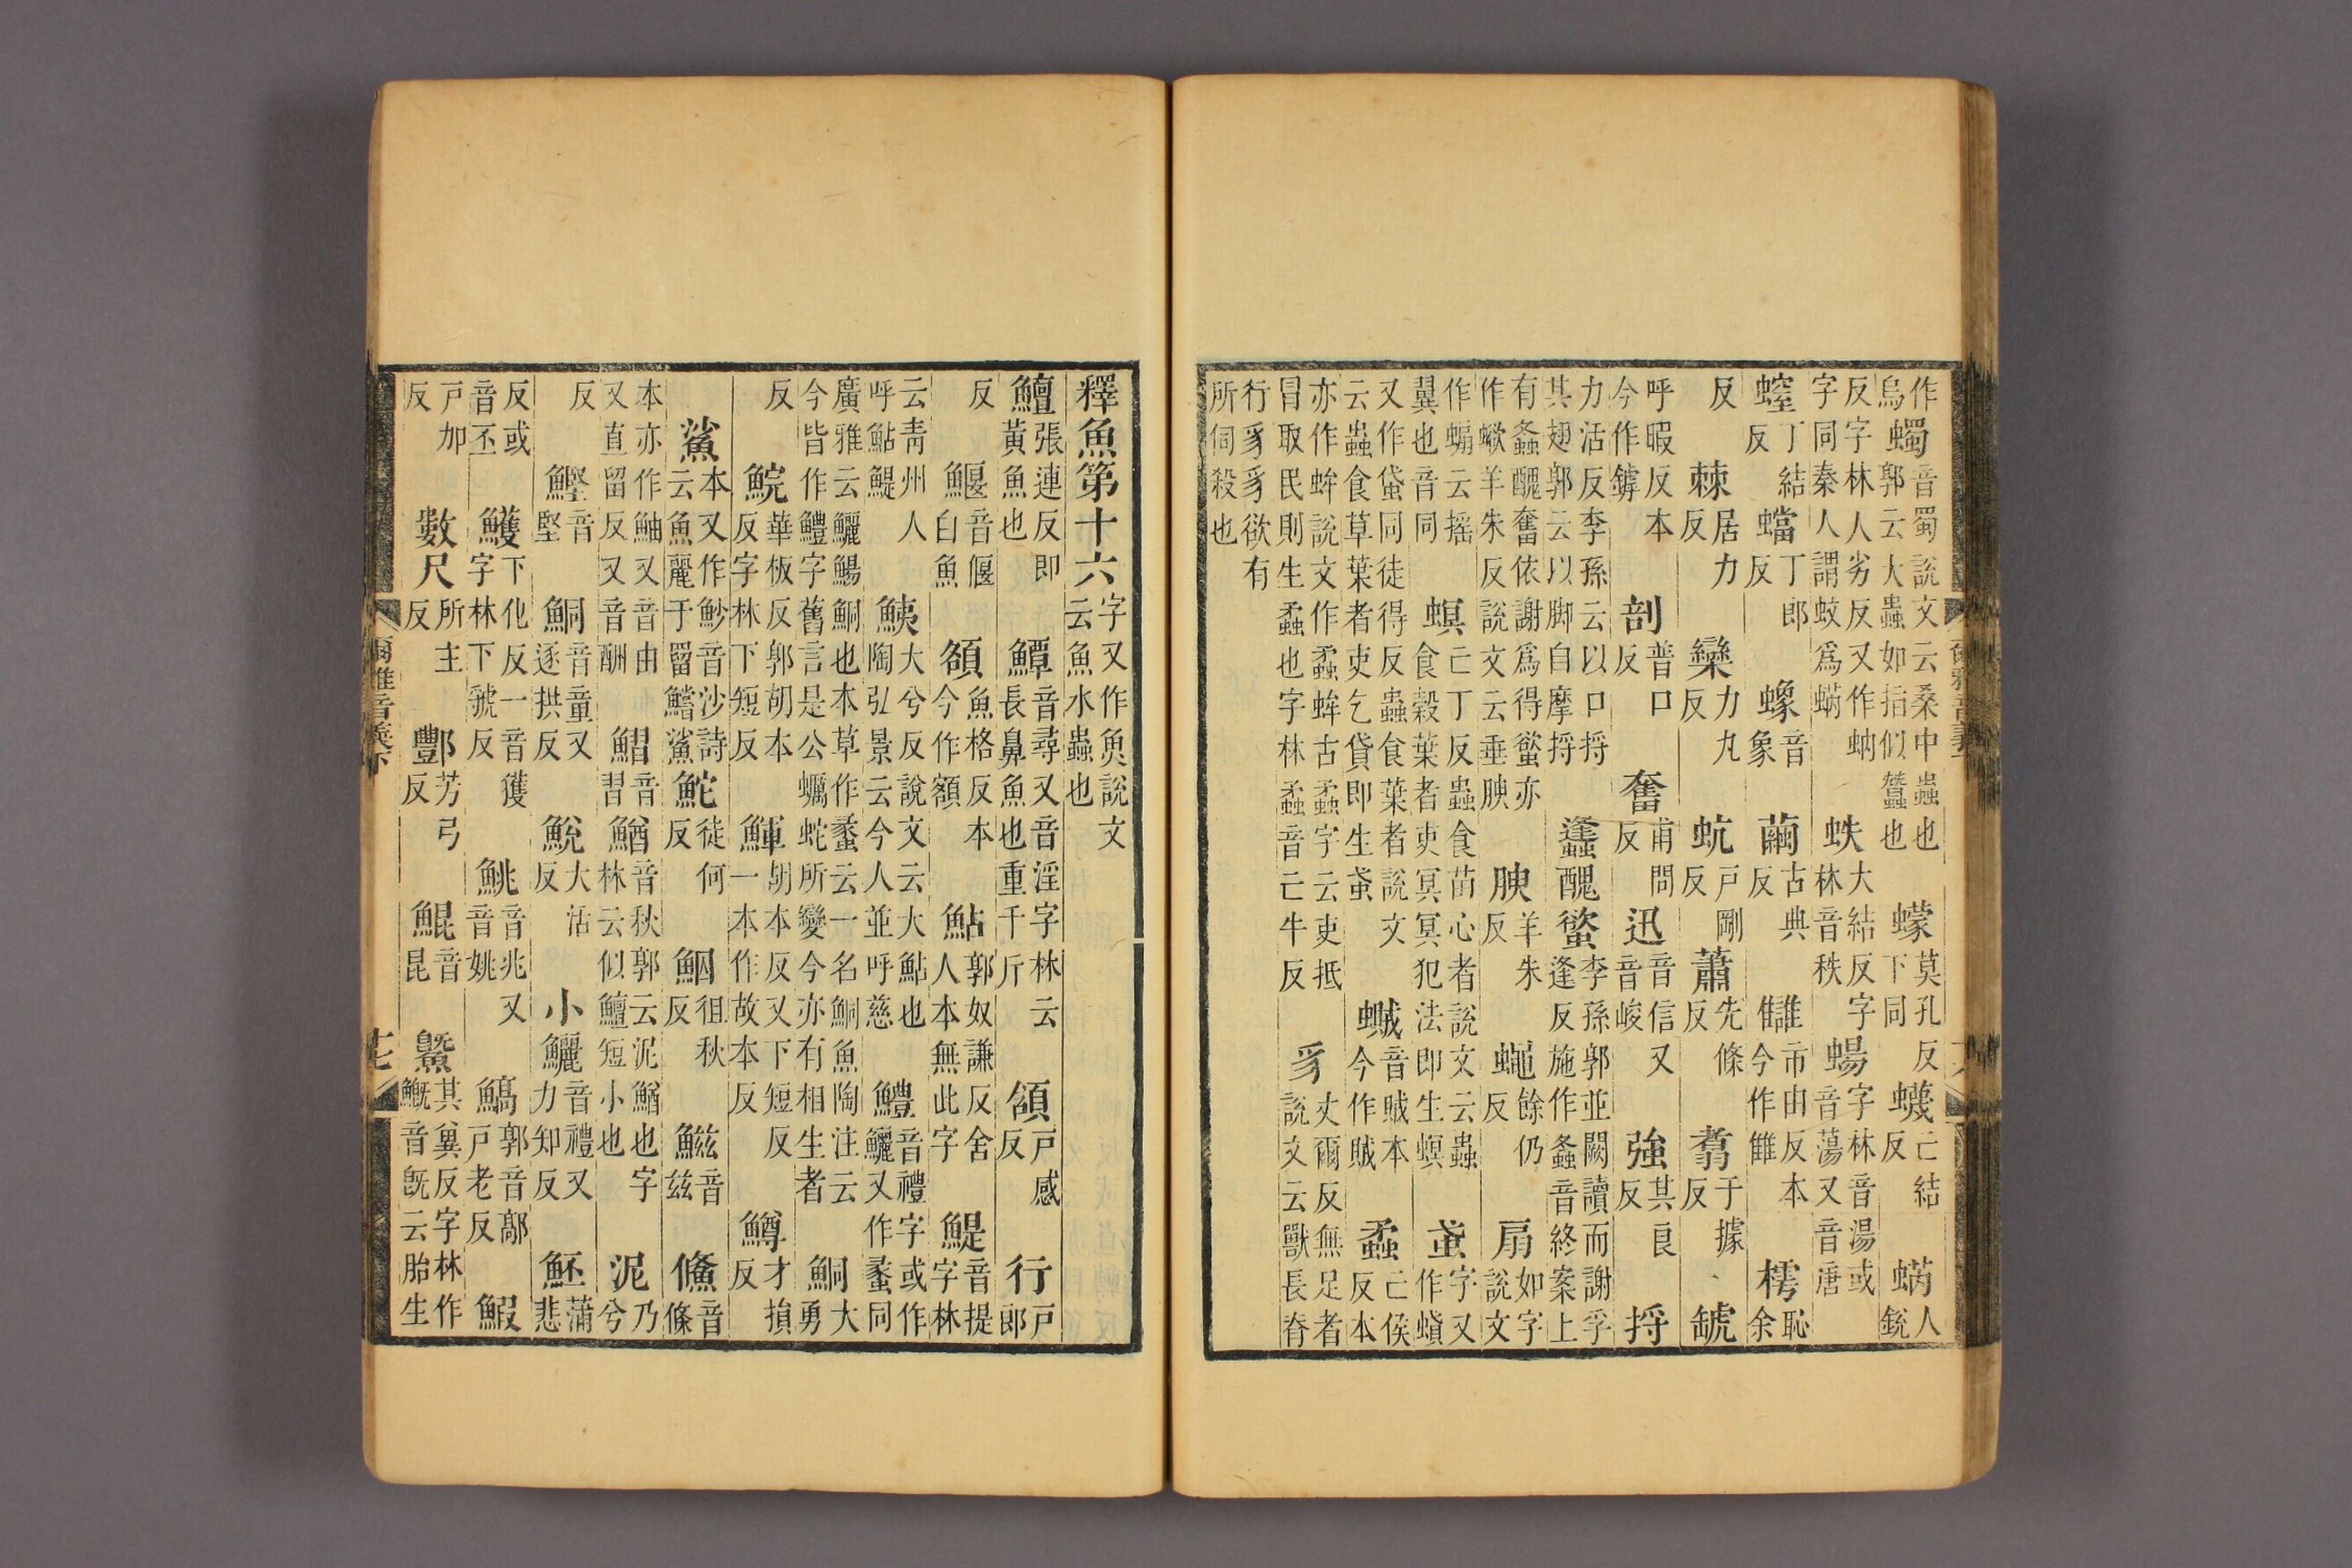 作烏蠋音蜀說文云桑中蟲也郭云大蟲如指似蠶也蠓莫孔反下同蠛亡結反蜹人銳
反字林人劣反又作蚋字同秦人謂蚊爲蜹蛈大結反字林音秩蝪字林音湯或音蕩又音唐
螲丁結反蟷丁郎反蟓音象繭古典反讎市由反本今作雔樗恥余
反棘居力反欒力丸反蚢戶剛反蕭先條反翥于據反罅
呼暇反本今作鏬剖普口反奮甫問反迅音信又音峻強其良反捋
力活反李孫云以口捋其翅郭云以脚自摩捋螽醜螸李孫郭並闕讀而謝孚逢反施作螽音終案上
有螽醜奮依謝爲得螸亦作蝛羊朱反說文云垂腴腴羊朱反蠅餘仍反扇如字說文
作蝙云搖翼也音同螟亡丁反蟲食苗心者說文云蟲食穀葉者吏冥冥犯法即生螟䖧字又作蟘
又作蟘同徒得反蟲食葉者說文云蟲食草葉者吏乞貸即生䖧蠈音賊本今作賊蟊亡侯反本
亦作蛑說文作蟊蛑古蟊字云吏抵冒取民則生蟊也字林蟊音亡牛反豸丈爾反無足者說文云獸長脊
行豸豸欲有所伺殺也
釋魚第十六字又作䲣說文云魚水蟲也
鱣張連反即黃魚也鱏音尋又音淫字林云長鼻魚也重千斤頷戶感反行戶郎
反鰋音偃白魚額魚格反本今作額鮎郭奴謙反舍人本無此字鯷音提字林
云青州人呼鮎鯷鮧大兮反說文云大鮎也陶弘景云今人並呼慈鱧音禮字或作鱺又作蠡同
廣雅云鱺鰑鮦也本草作蠡云一名鮦魚陶注云今皆作鱧字舊言是公蠣蛇所變今亦有相生者鮦大勇
反鯇華板反郭胡本反字林下短反鯶胡本反又下短反一本作故本反鱒才損
鯊本又作魦音沙詩云魚麗于罶鱨鯊鮀徒何反鮂徂秋反鰦音兹鯈音條
本亦作鮋又音由又直留反又音酬鰼音習鰌音秋郭云泥鰌也字林云似鱣短小也泥乃兮
反鰹音堅鮦音童又逐拱反鮵大活反小鱺音禮又力知反魾蒲悲
反或音丕鱯下化反一音獲字林下虢反鮡音兆又音姚鰝郭音鄗戶老反鰕
戶加反數尺所主反酆芳弓反鯤音昆鱀其冀反字林作鱀音旣云胎生
爾雅音義下
十七